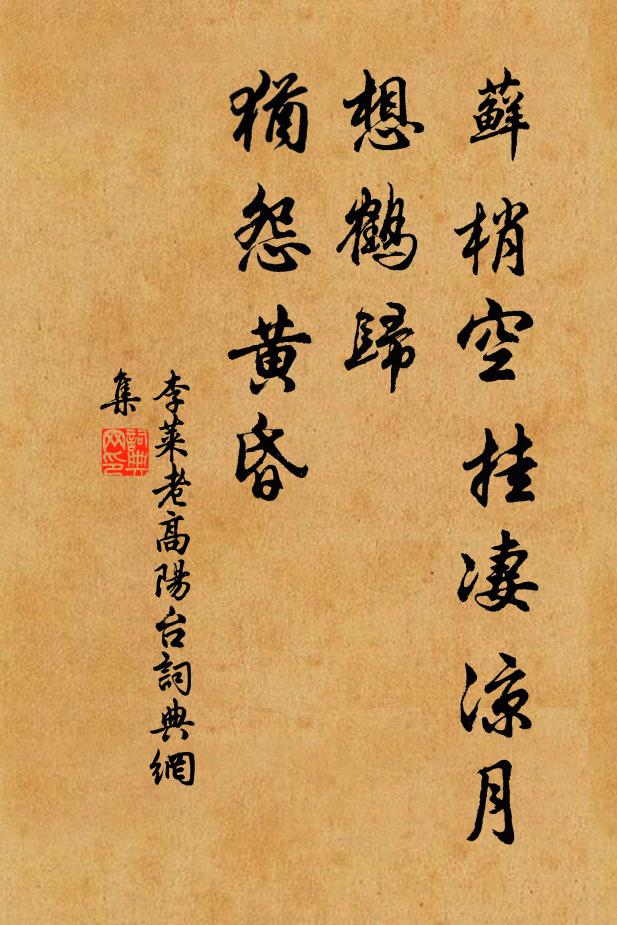 蘚梢空挂淒涼月
想鶴歸
猶怨黄昏
李萊老高陽台詞典網
集
詞典
网印